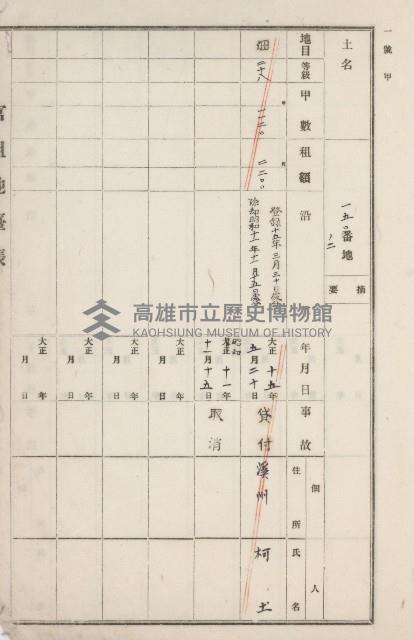 一號甲
土名
一五〇番地
ノ二
摘要
地目 等級 甲數 租額 沿 年月日 事故 個人
住所 氏名
畑 二十八 一一二〇 二二〇〇
登錄十五年三月三十日
除却昭和十一年十一月十五日
大正十五年五月二十日 貸付 溪州 柯土
昭和
大正十一年十一月十五日 取消
大正 年 月 日
大正 年 月 日
大正 年 月 日
大正 年 月 日
官租地臺帳
高雄市立歷史博物館
KAOHSIUNG MUSEUM OF HISTORY